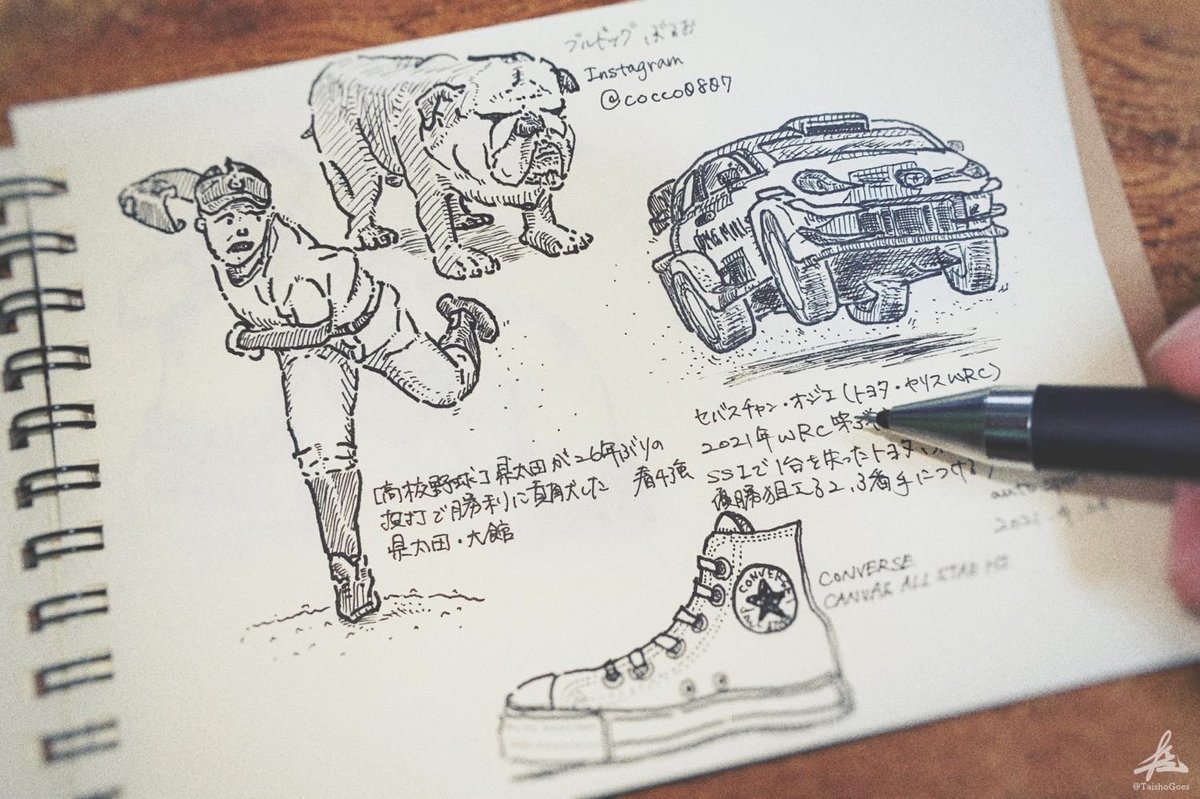 ブルドッグ ぶるお
Instagram
@cocco0807
OMG MILL
セバスチャン・オジェ(トヨタ・ヤリスWRC)
2021年 WRC 第3
SS1で1台を失ったトヨタ
優勝狙える2,3番手につける
[高校野球] 県太田が26年ぶりの 春4強
投打で勝利に貢献した
県太田・大館
2021.4.24
CONVERSE
ALL STAR
CONVERSE
CANVAS ALL STAR HI
@TaishoGoes